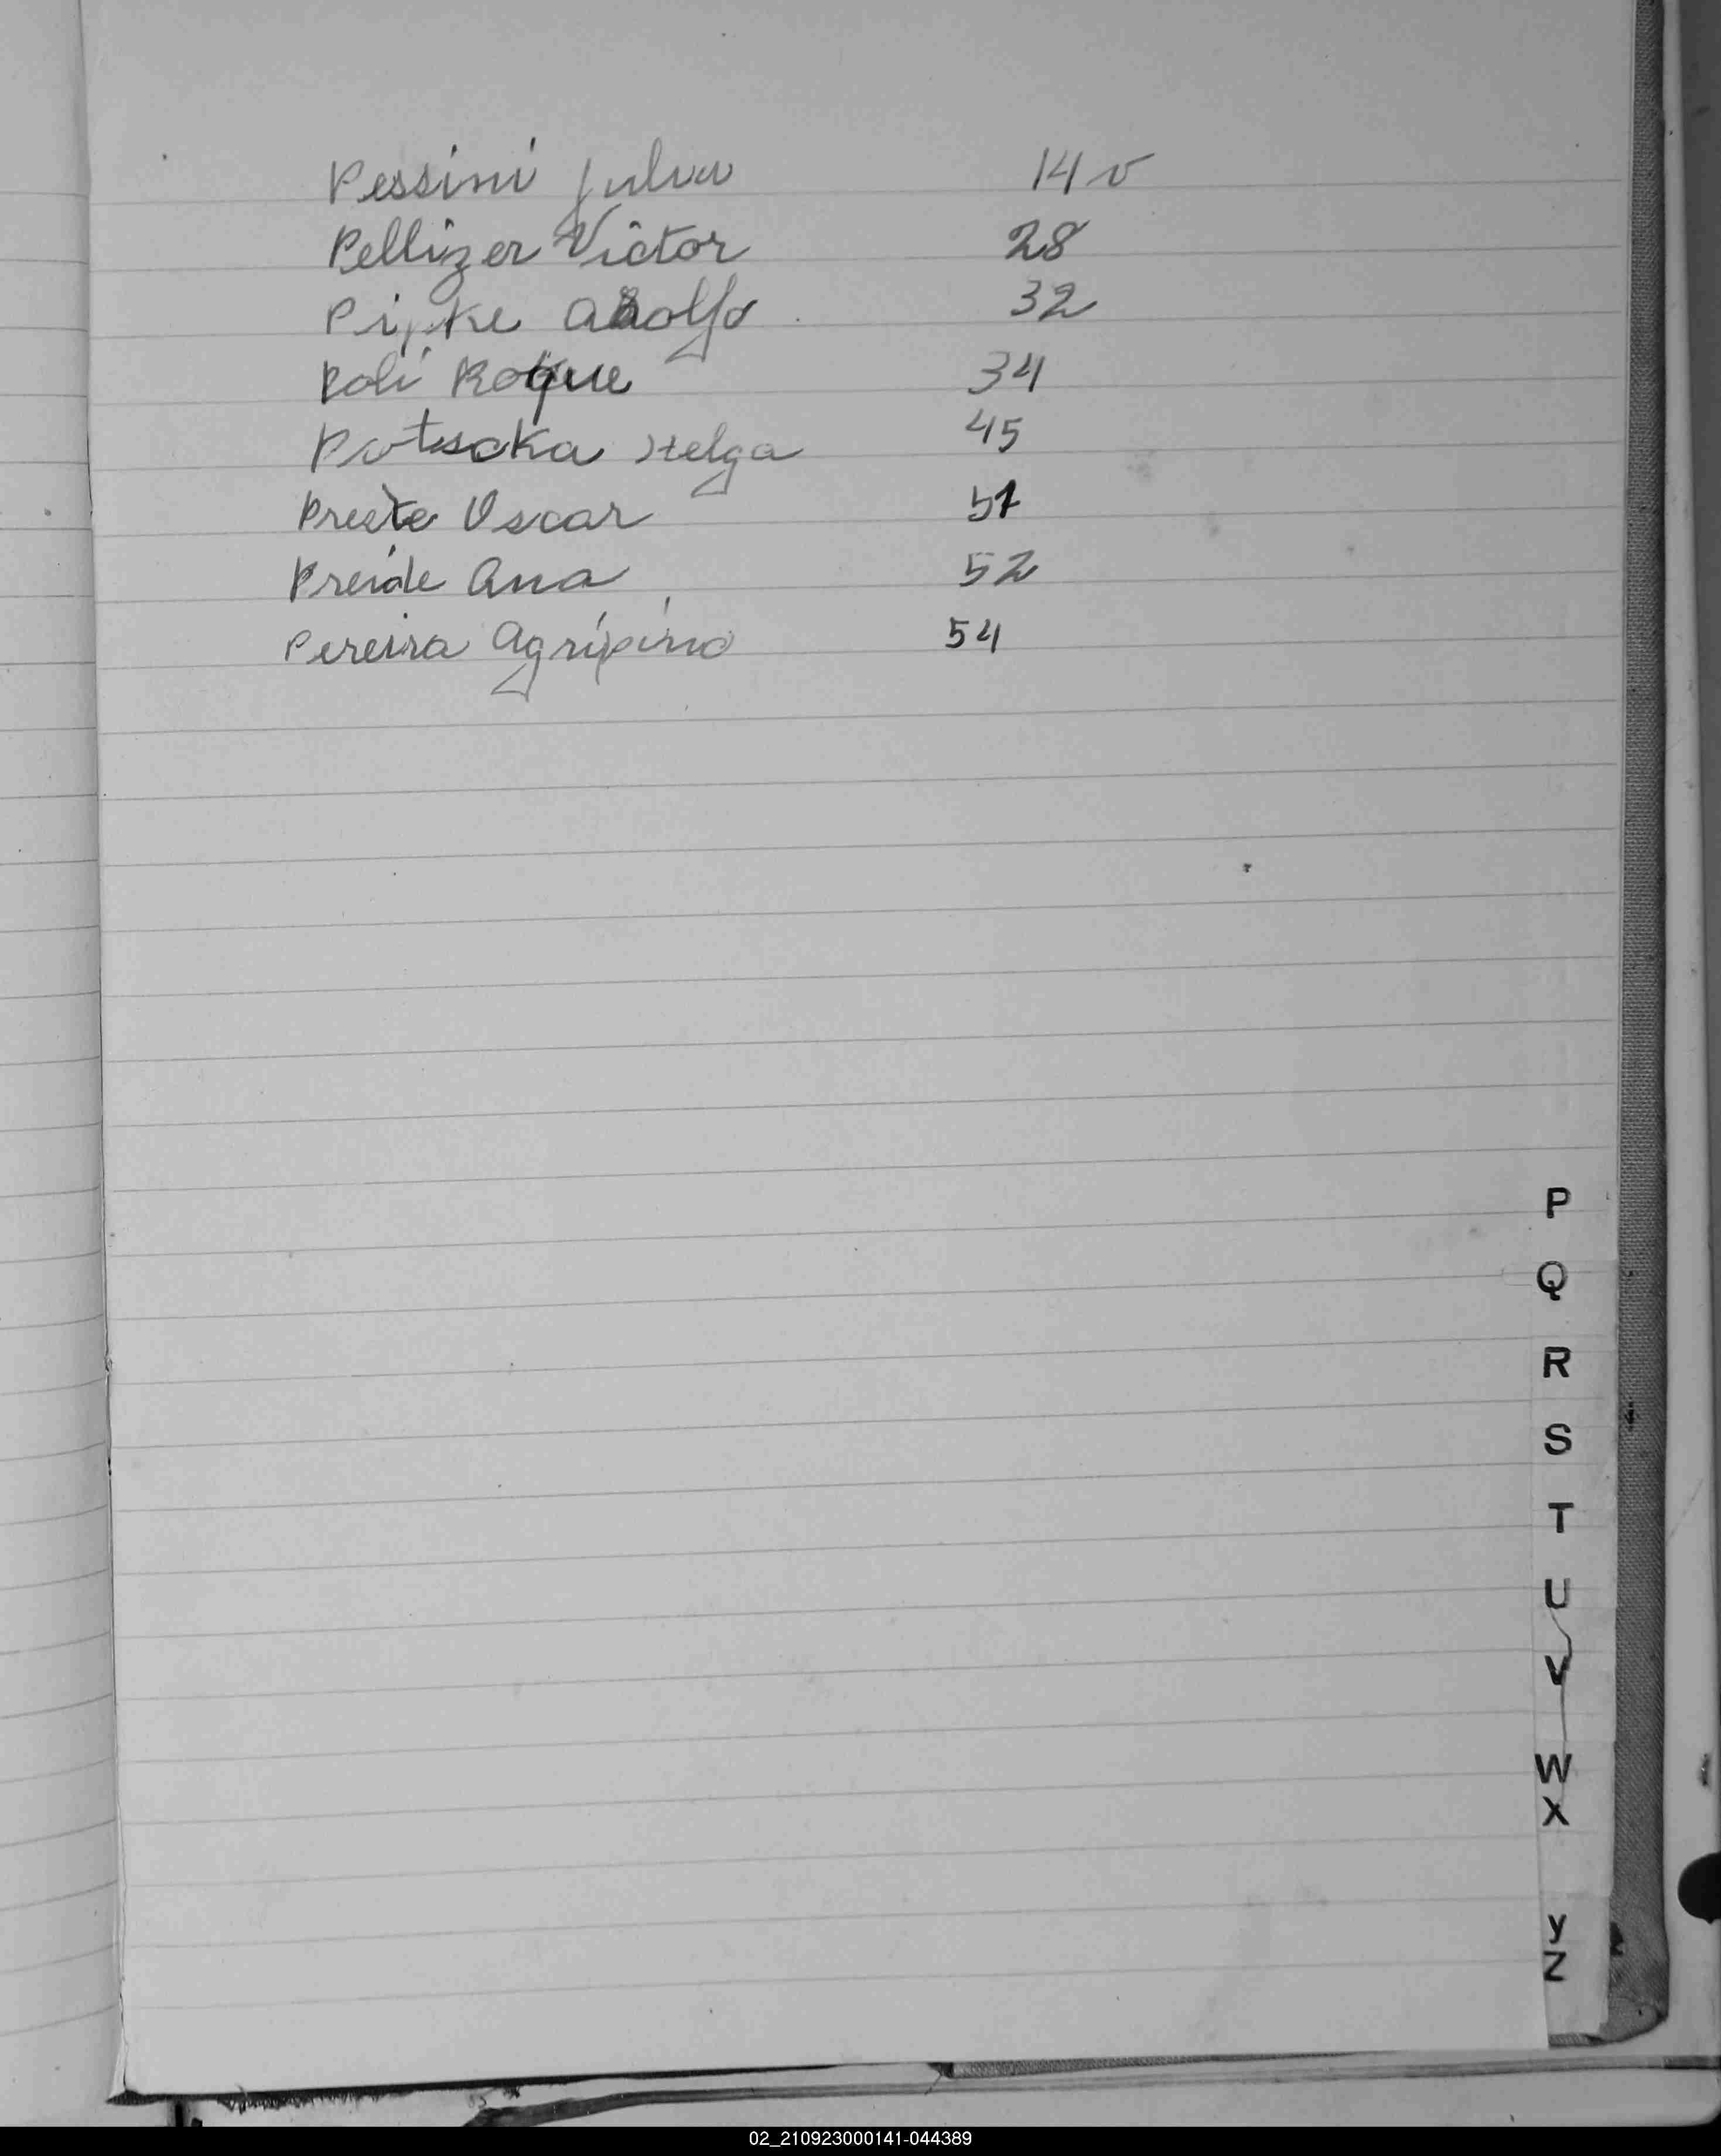 Pessini Julio 14 v
Pellizer Victor 28
Pipke Adolfo 32
Poli Roque 34
Potscka Helga 45
Oscar 51
Preide Ana 52
Pereira Agripino 54
P
Q
R
S
T
U
V
W
X
y
Z
02_210923000141-044389